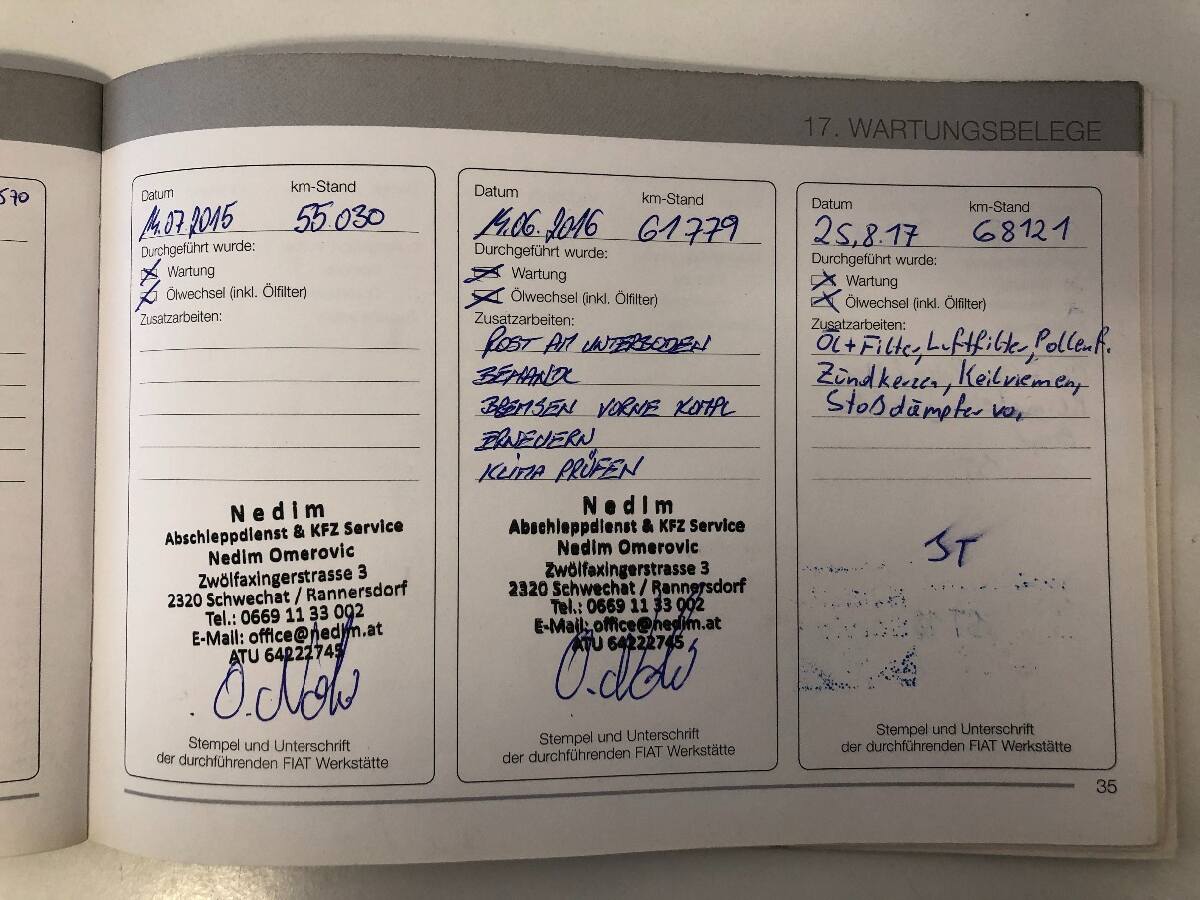 570
17. WARTUNGSBELEGE
Datum km-Stand
14.07.2015 55.030
Durchgeführt wurde:
Wartung
Ölwechsel (inkl. Ölfilter)
Zusatzarbeiten:
Nedim
Abschleppdienst & KFZ Service
Nedim Omerovic
Zwölfaxingerstrasse 3
2320 Schwechat / Rannersdorf
Tel.: 0669 11 33 002
E-Mail: office@nedim.at
ATU 64222745
Stempel und Unterschrift
der durchführenden FIAT Werkstätte
Datum km-Stand
14.06.2016 61779
Durchgeführt wurde:
Wartung
Ölwechsel (inkl. Ölfilter)
Zusatzarbeiten:
ROST AM UNTERBODEN
BEHANDL
BREMSEN VORNE KOMPL
ERNEUERN
KLIMA PRÜFEN
Nedim
Abschleppdienst & KFZ Service
Nedim Omerovic
Zwölfaxingerstrasse 3
2320 Schwechat / Rannersdorf
Tel.: 0669 11 33 002
E-Mail: office@nedim.at
ATU 64222745
Stempel und Unterschrift
der durchführenden FIAT Werkstätte
Datum km-Stand
25.8.17 68121
Durchgeführt wurde:
Wartung
Ölwechsel (inkl. Ölfilter)
Zusatzarbeiten:
Öl+Filter, Luftfilter, Pollenf.
Zündkerzen, Keilriemen,
Stoßdämpfer vo.
Stempel und Unterschrift
der durchführenden FIAT Werkstätte
35